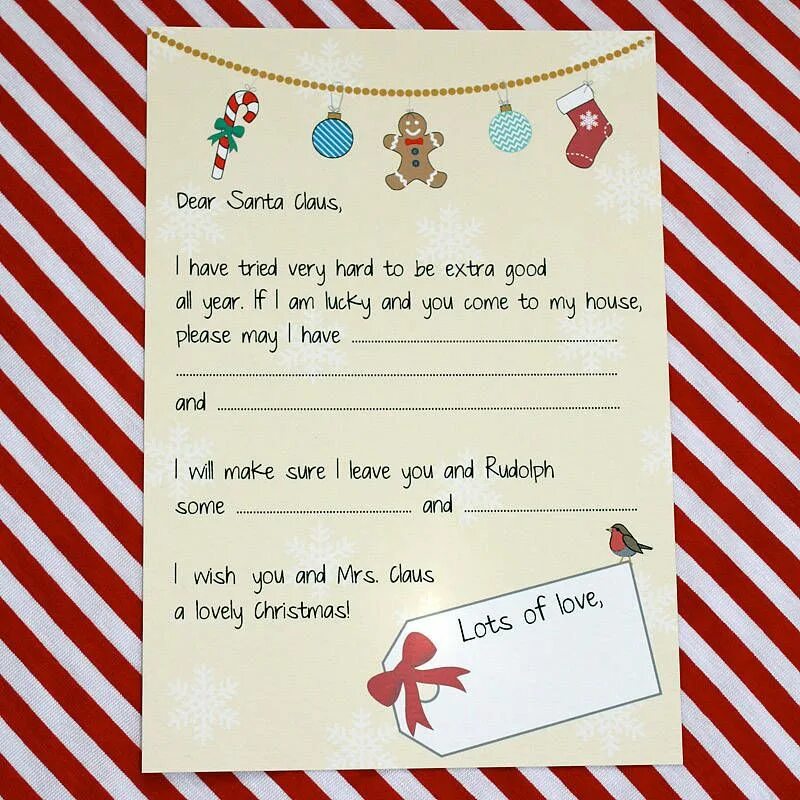 Dear Santa Claus,
I have tried very hard to be extra good
all year. If I am lucky and you come to my house,
please may I have ..........
..........
and ..........
I will make sure I leave you and Rudolph
some .......... and ..........
I wish you and Mrs. Claus
a lovely Christmas!
Lots of love,